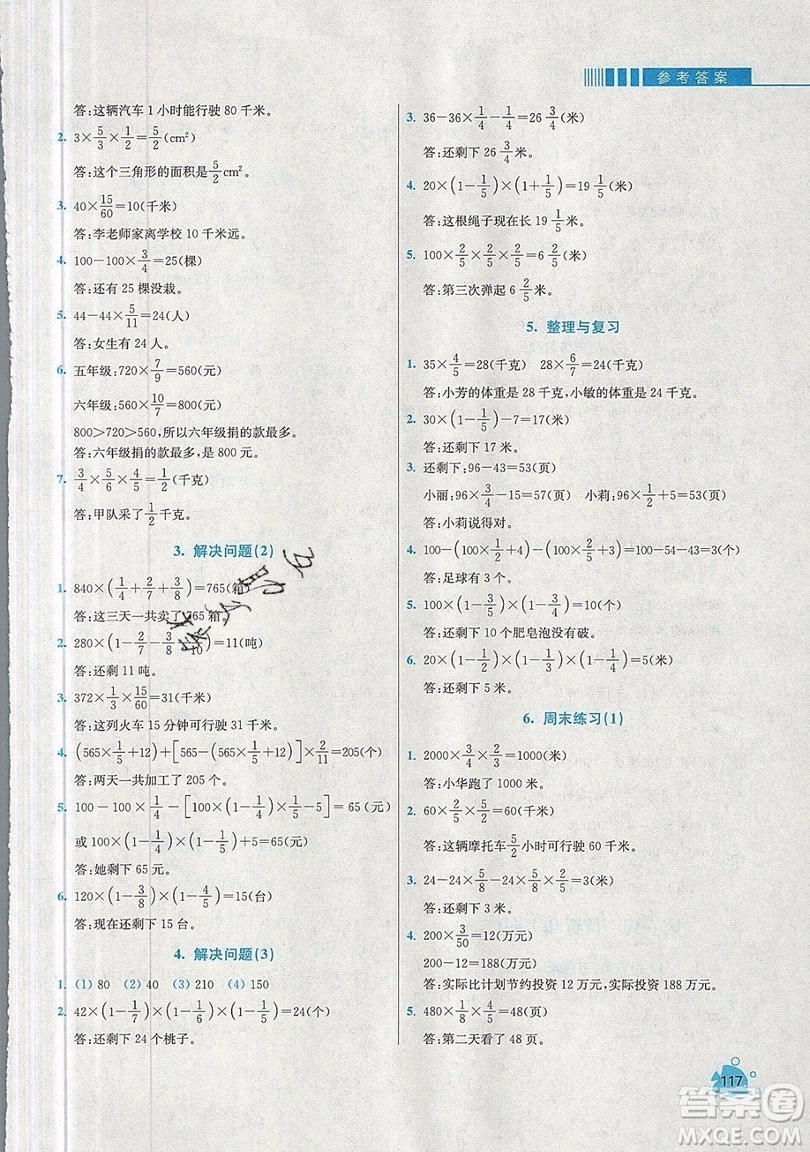 参考答案
答:这辆汽车 1 小时能行驶 80 千米。
2. 3×5/3×1/2=5/2(cm²)
答:这个三角形的面积是5/2cm²。
3. 40×15/60=10(千米)
答:李老师家离学校 10 千米远。
4. 100-100×3/4=25(棵)
答:还有 25 棵没栽。
5. 44-44×5/11=24(人)
答:女生有 24 人。
6. 五年级:720×7/9=560(元)
六年级:560×10/7=800(元)
800>720>560,所以六年级捐的款最多。
答:六年级捐的款最多,是 800 元。
7. 3/4×5/6×4/5=1/2(千克)
答:甲队采了1/2千克。
3. 解决问题(2)
1. 840×(1/4+2/7+3/8)=765(箱)
答:这三天一共卖了 765 箱。
2. 280×(1-2/7-3/8- /10)=11(吨)
答:还剩 11 吨。
3. 372×1/3×15/60=31(千米)
答:这列火车 15 分钟可行驶 31 千米。
4. (565×1/5+12)+[565-(565×1/5+12)]×2/11=205(个)
答:两天一共加工了 205 个。
5. 100-100×1/4-[100×(1-1/4)×1/5-5]=65(元)
或 100×(1-1/4)×(1-1/5)+5=65(元)
答:她剩下 65 元。
6. 120×(1-3/8)×(1-4/5)=15(台)
答:现在还剩下 15 台。
4. 解决问题(3)
1. (1) 80 (2) 40 (3) 210 (4) 150
2. 42×(1-1/7)×(1-1/6)×(1-1/5)=24(个)
答:还剩下 24 个桃子。
3. 36-36×1/4-1/4=26 3/4(米)
答:还剩下 26 3/4 米。
4. 20×(1-1/5)×(1+1/5)=19 1/5(米)
答:这根绳子现在长 19 1/5 米。
5. 100×2/5×2/5×2/5=6 2/5(米)
答:第三次弹起 6 2/5 米。
5. 整理与复习
1. 35×4/5=28(千克) 28×6/7=24(千克)
答:小芳的体重是 28 千克,小敏的体重是 24 千克。
2. 30×(1-1/5)-7=17(米)
答:还剩下 17 米。
3. 还剩下:96-43=53(页)
小丽:96×3/4-15=57(页) 小莉:96×1/2+5=53(页)
答:小莉说得对。
4. 100-(100×1/2+4)-(100×2/5+3)=100-54-43=3(个)
答:足球有 3 个。
5. 100×(1-4/5)×(1-1/2)=10(个)
答:还剩下 10 个肥皂泡没有破。
6. 20×(1-1/2)×(1-1/3)×(1-1/4)=5(米)
答:还剩下 5 米。
6. 周末练习(1)
1. 2000×3/4×2/3=1000(米)
答:小华跑了 1000 米。
2. 60×2/5×5/2=60(千米)
答:这辆摩托车5/2小时可行驶 60 千米。
3. 24-24×5/8-24×2/8=3(米)
答:还剩下 3 米。
4. 200×3/50=12(万元)
200-12=188(万元)
答:实际比计划节约投资 12 万元,实际投资 188 万元。
5. 480×1/8×4/5=48(页)
答:第二天看了 48 页。
117
答案圈
MXQE.COM